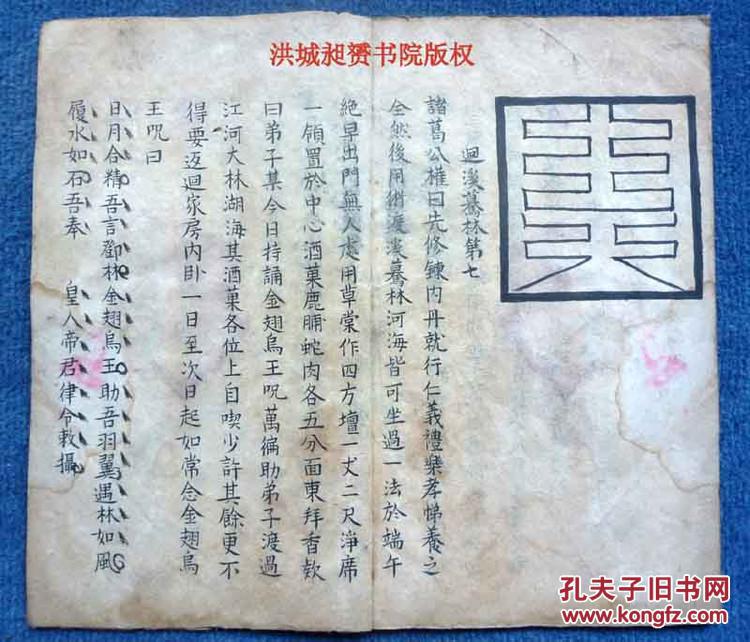 洪城昶赟书院版权
迴溪驀林第七
諸葛公權曰先修鍊內丹就行仁義禮樂孝悌養之
全然後用術渡溪驀林河海皆可坐過一法於端午
絶早出門無人處用草棠作四方壇一丈二尺淨席
一領置於中心酒菓鹿脯蛇肉各五分面東拜香欵
曰弟子某今日持誦金翅烏王咒萬徧助弟子渡過
江河大林湖海其酒菓各位上自喫少許其餘更不
得要迈迴家房內卧一日至次日起如常念金翅烏
王咒曰
日月合精吾言鄧林金翅烏王助吾羽翼遇林如風
履水如石吾奉 皇人帝君律令敕攝
孔夫子旧书网
www.kongfz.com